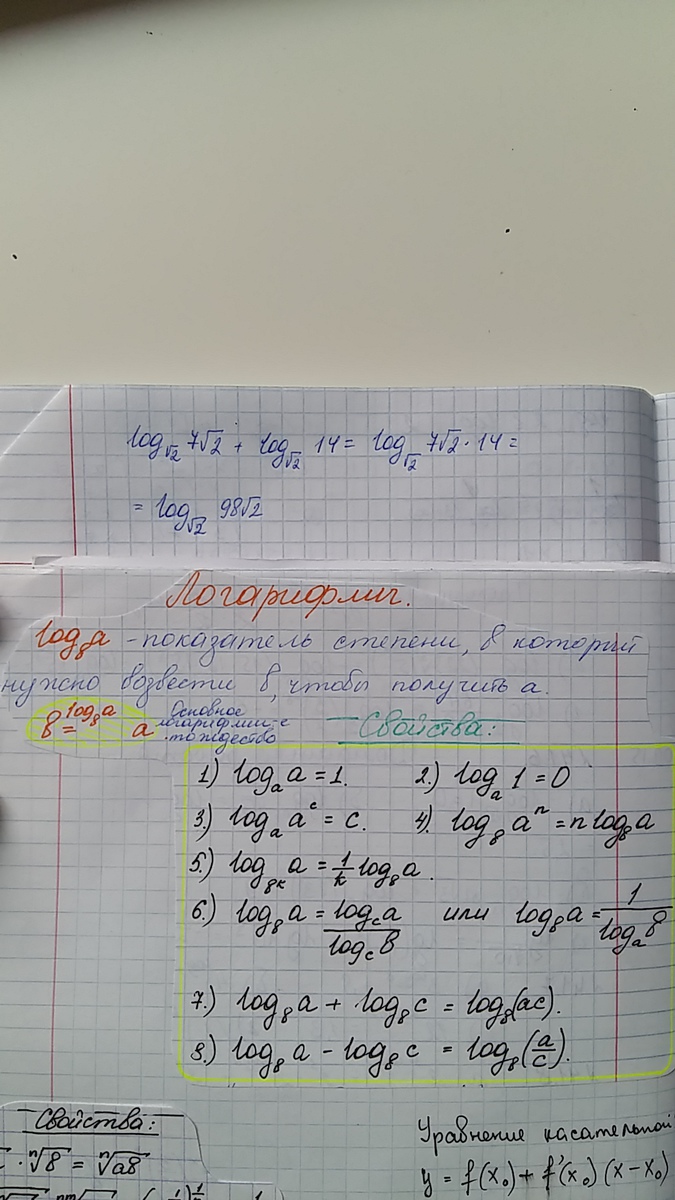 log√2 7√2 + log√2 14 = log√2 7√2·14 =
= log√2 98√2
Логарифмич.
logва - показатель степени, в который
нужно возвести в, чтобы получить а.
в^logва = а Основное
логарифмич-е
тождество
Свойства:
1) logₐa = 1. 2.) logₐ1 = 0
3.) logₐaᶜ = c. 4). logв aⁿ = n logв a
5.) logвк a = 1/к logв a.
6.) logв a = logс a / logс в или logв a = 1 / logₐ в
7.) logв a + logв c = logв(ac).
8.) logв a - logв c = logв(a/c).
Свойства:
· ⁿ√в = ⁿ√aв
Уравнение касательной
y = f(x₀) + f'(x₀)(x-x₀)